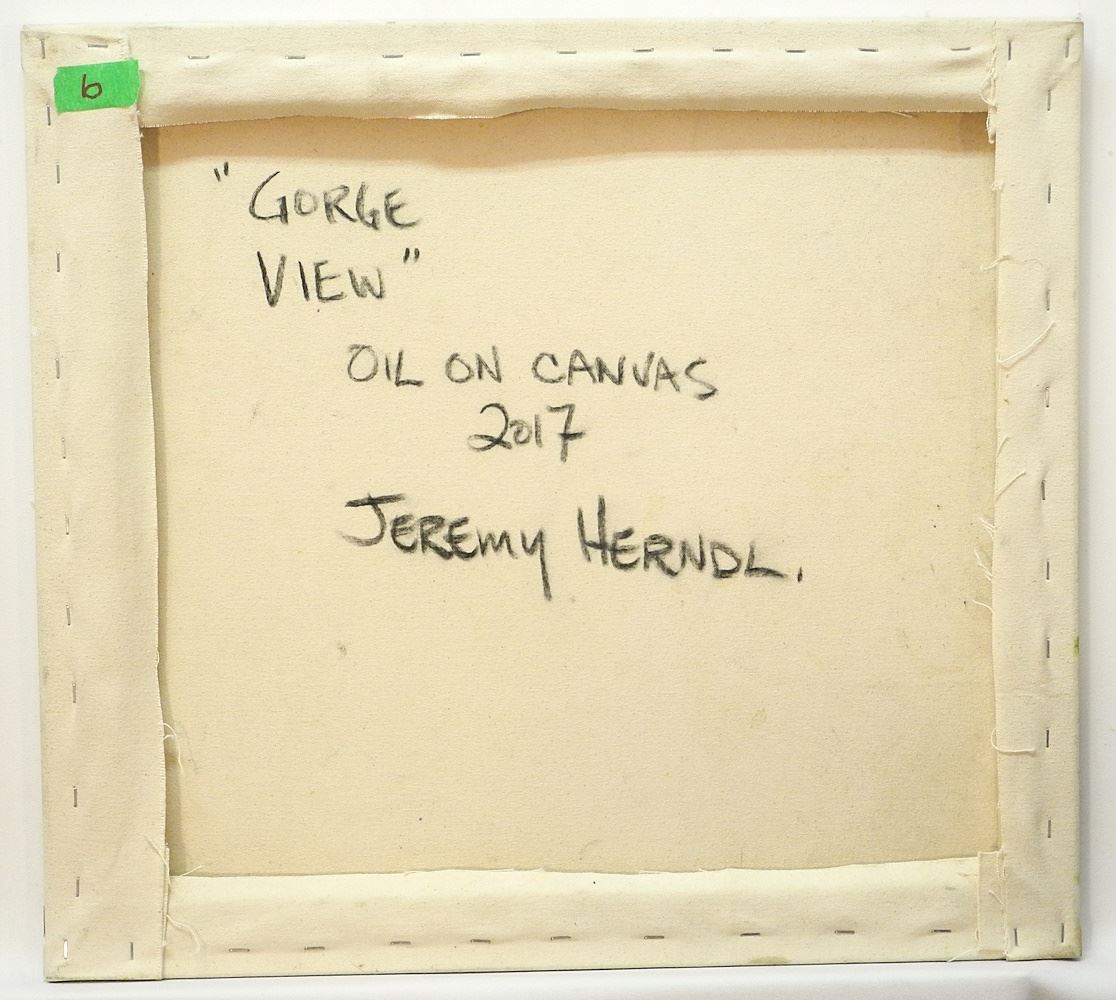 6
"GORGE
VIEW"
OIL ON CANVAS
2017
JEREMY HERNDL.